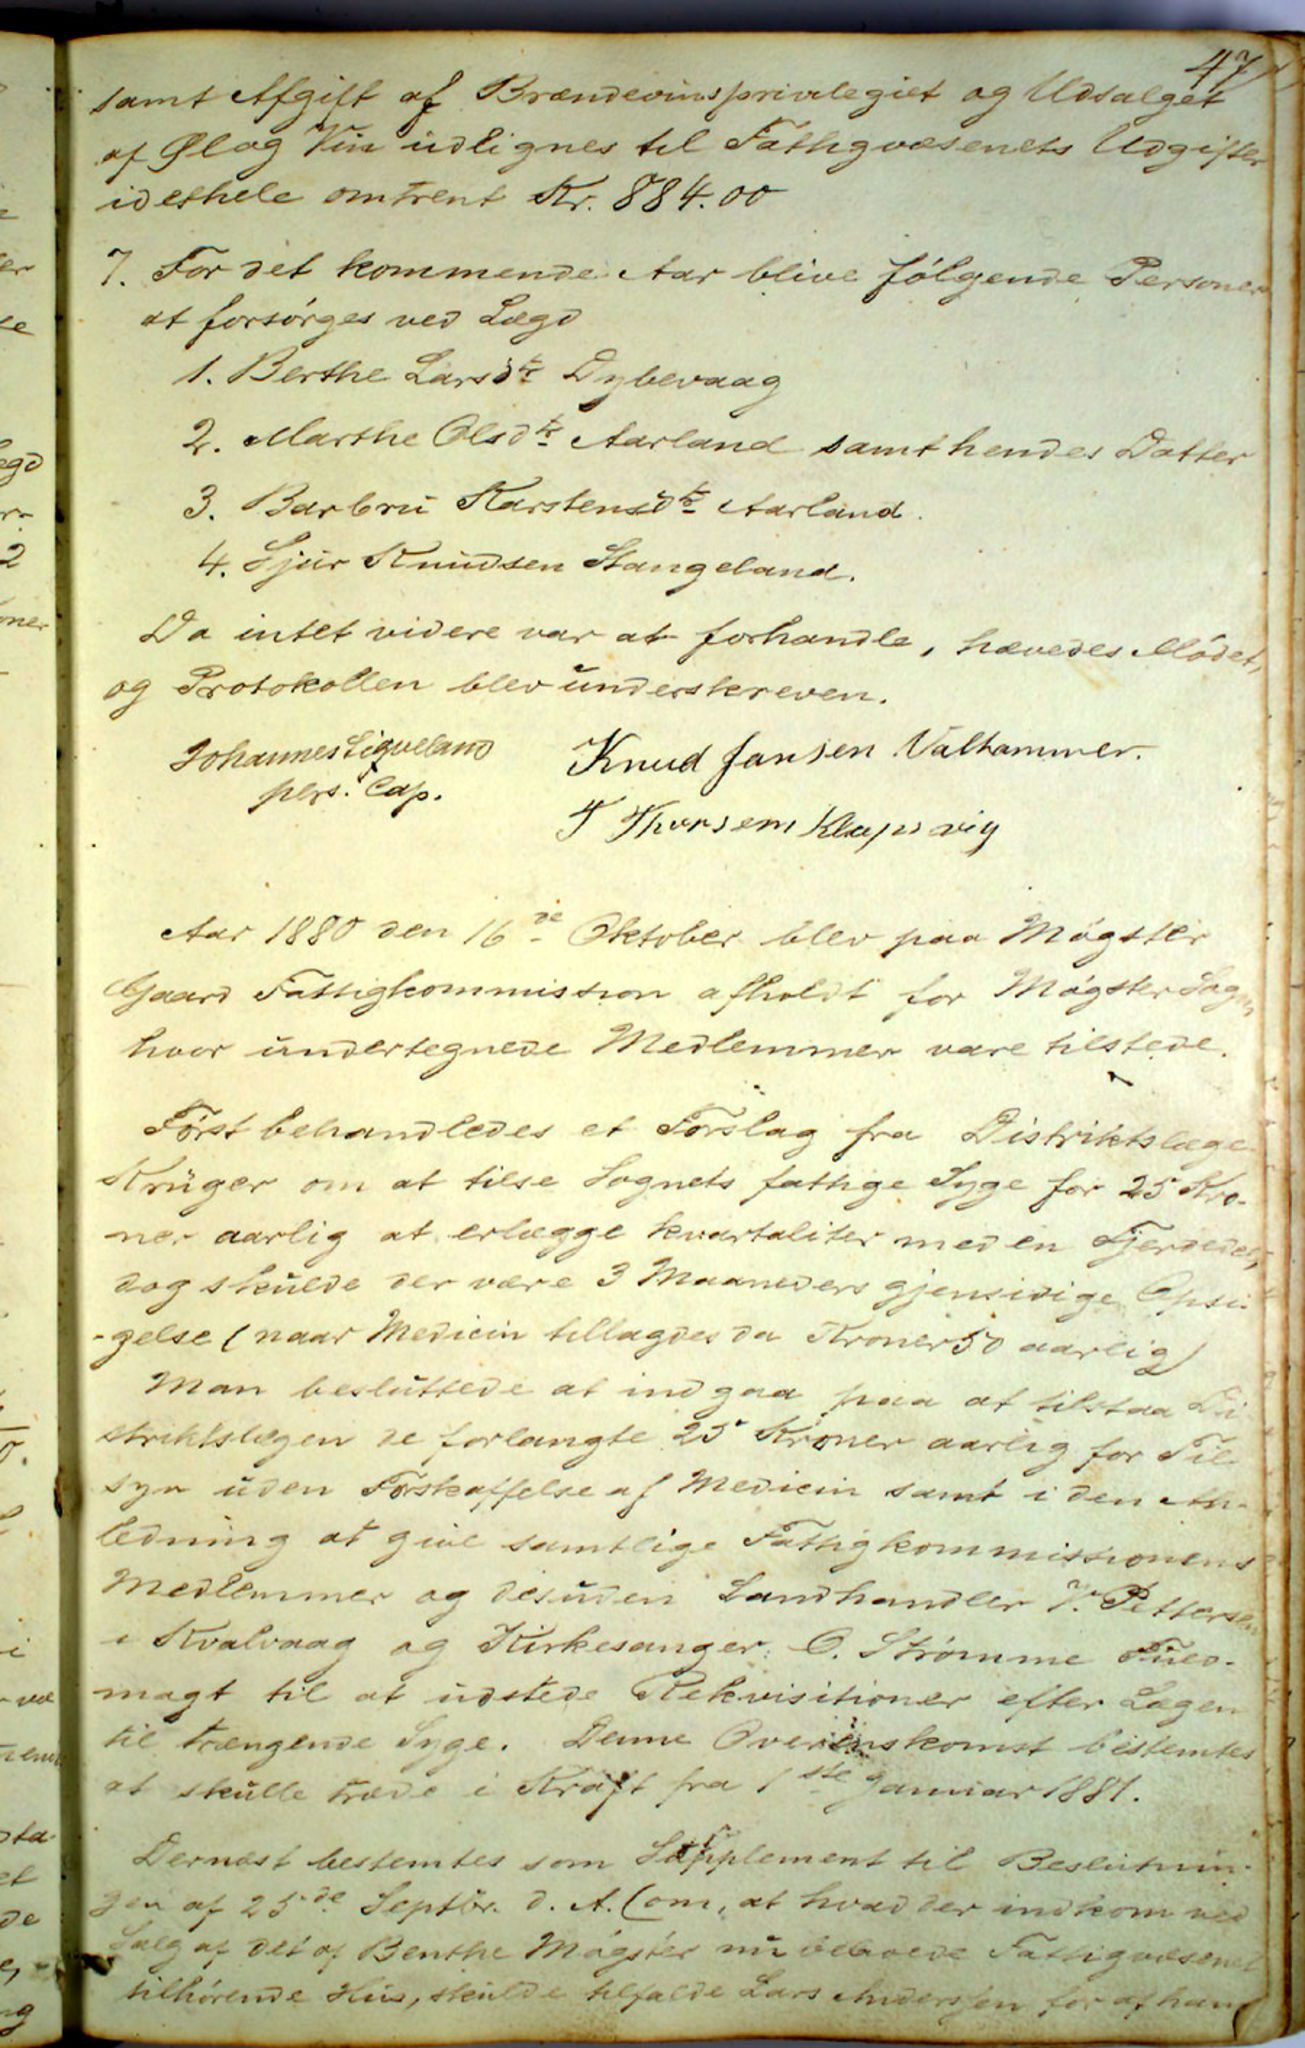 47
samt Afgift af Brændevinsprivilegiet og Udsalget
af Øl og Vin udlignes til Fathigvæsenets Udgifter
idethele omtrent Kr. 884.00
7. For det kommende Aar blive følgende Personer
at forsørges ved Lægd
1. Berthe Larsdtr Dybevaag
2. Marthe Olsdtr Aarland samt hendes Datter
3. Barbru Karstensdtr Aarland.
4. Sjur Knudsen Stangeland.
Da intet videre var at forhandle, hævedes Mødet,
og Protokollen blev underskreven.
Johannes Liqveland Knud Jansen Valhammer.
pers. Cap.
T Thorsen Klepsvig
Aar 1880 den 16de Oktober blev paa Møgster
Gaard Fattigkommission afholdt for Møgster Sogn
hvor undertegnede Medlemmer vare tilstede.
Først behandledes et Forslag fra Distriktslæge
Krüger om at tilse Sognets fattige Syge for 25 Kro-
ner aarlig at erlægge kvartaliter med en Fjerdedel,
dog skulde der være 3 Maaneders gjensidige Opsi-
-gelse (naar Medicin tillagdes da Kroner 50 aarlig)
Man besluttede at indgaa paa at tilstaa Di-
striktslægen de forlangte 25 Kroner aarlig for Til-
syn uden Forskaffelse af Medicin samt i den An-
ledning at give samtlige Fattigkommissionens
Medlemmer og desuden Landhandler V. Pettersen
i Kvalvaag og Kirkesanger O. Strømme Fuld-
magt til at udstede Rekvisitioner efter Lægen
til trængende Syge. Denne Overenskomst bestemtes
at skulle træde i Kraft fra 1ste Januar 1881.
Dernæst bestemtes som Supplement til Beslutnin-
gen af 25de Septbr. d. A. (om, at hvad der indkom ved
Salg af det af Benthe Møgster nu beboede Fattigvæsenet
tilhørende Hus, skulde tilfalde Lars Anderssen for af han